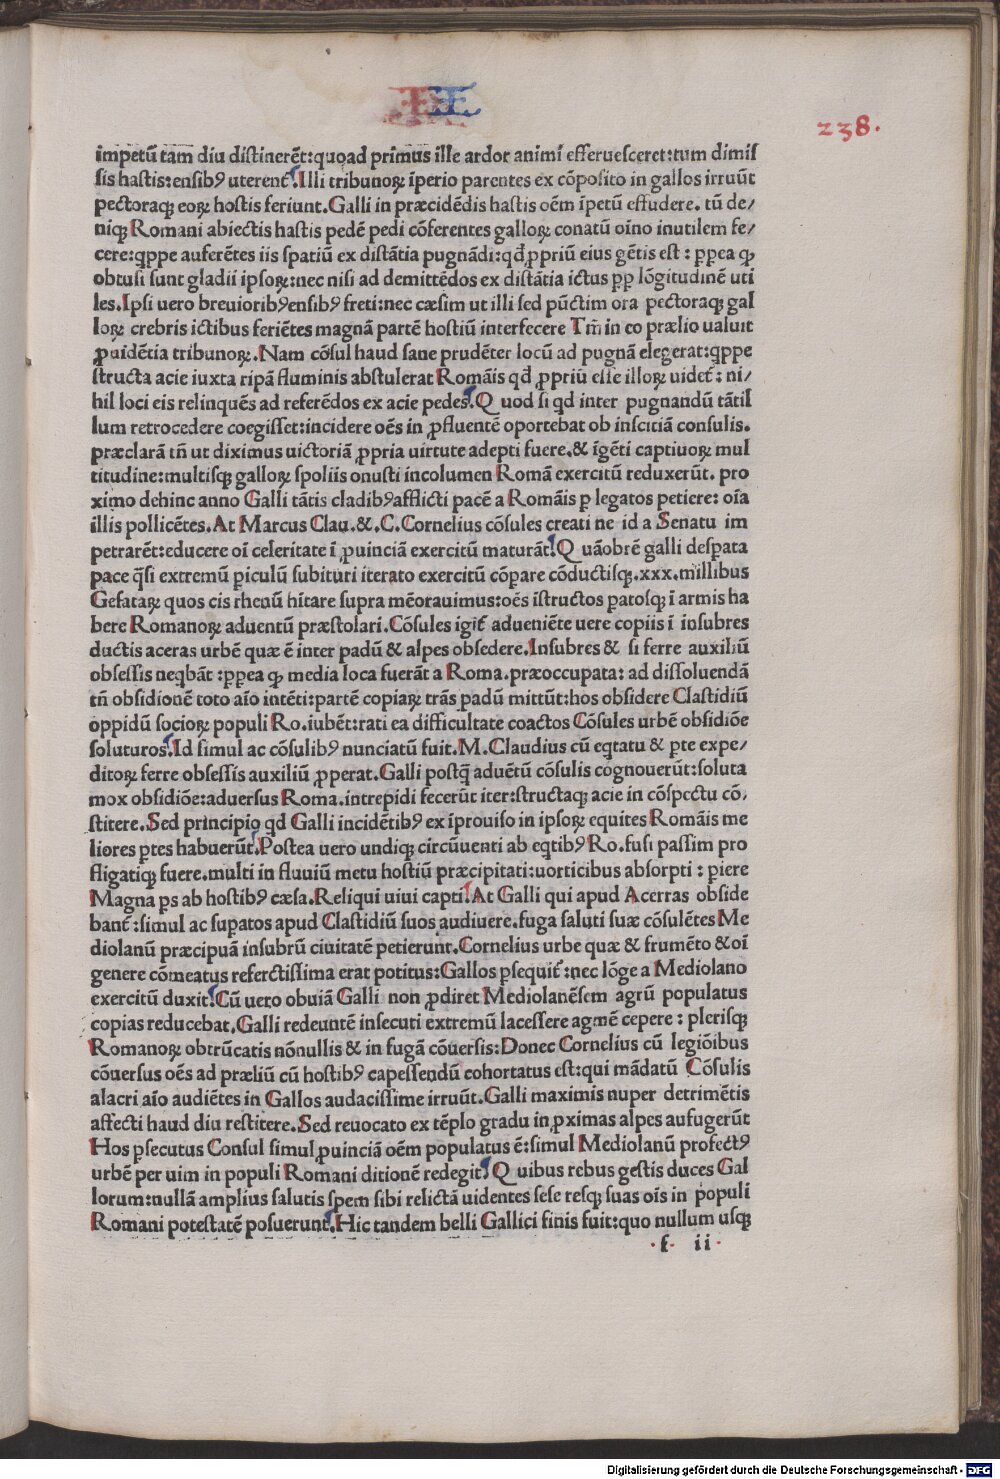 II
238.
impetũ tam diu distinerẽt:quoad primus ille ardor animi efferuesceret:tum dimis
sis hastis:ensibꝰ uterent᷑.Illi tribunoꝝ ĩperio parentes ex cõposito in gallos irruũt
pectoraqꝫ eoꝝ hostis feriunt.Galli in præcidẽdis hastis oẽm ĩpetũ effudere. tũ de/
niqꝫ Romani abiectis hastis pedẽ pedi cõferentes galloꝝ conatũ oĩno inutilem fe/
cere:qꝑpe auferẽtes iis spatiũ ex distãtia pugnãdi:qđ ꝓpriũ eius gẽtis est : ꝓpea ꝙ
obtusi sunt gladii ipsoꝝ:nec nisi ad demittẽdos ex distãtia ictus ꝓp lõgitudinẽ uti
les.Ipsi uero breuioribꝰensibꝰ freti:nec cæsim ut illi sed pũctim ora pectoraqꝫ gal
loꝝ crebris ictibus feriẽtes magnã partẽ hostiũ interfecere Tm̃ in eo prælio ualuit
ꝓuidẽtia tribunoꝝ.Nam cõsul haud sane prudẽter locũ ad pugnã elegerat:qꝑpe
structa acie iuxta ripã fluminis abstulerat Romãis qđ ꝓpriũ esse illoꝝ uidet᷑: ni/
hil loci eis relinquẽs ad referẽdos ex acie pedes.Q uod si qd inter pugnandũ tãtil
lum retrocedere coegisset:incidere oẽs in ꝓfluentẽ oportebat ob inscitiã consulis.
præclarã tñ ut diximus uictoriã ꝓpria uirtute adepti fuere.& ĩgẽti captiuoꝝ mul
titudine:multisqꝫ galloꝝ spoliis onusti incolumen Romã exercitũ reduxerũt. pro
ximo dehinc anno Galli tãtis cladibꝰafflicti pacẽ a Romãis ꝑ legatos petiere: oĩa
illis pollicẽtes.At Marcus Clau.&.C.Cornelius cõsules creati ne id a Senatu im
petrarẽt:educere oĩ celeritate ĩ ꝓuinciã exercitũ maturãt.Q uãobrẽ galli desꝑata
pace q̃si extremũ ꝑiculũ subituri iterato exercitũ cõpare cõductisqꝫ.xxx.millibus
Gesataꝝ quos cis rhenũ hĩtare supra mẽorauimus:oẽs ĩstructos ꝑatosqꝫ ĩ armis ha
bere Romanoꝝ aduentũ præstolari.Cõsules igit᷑ adueniẽte uere copiis ĩ insubres
ductis aceras urbẽ quæ ẽ inter padũ & alpes obsedere.Insubres & si ferre auxiliũ
obsessis neqbãt :ꝓpea ꝙ media loca fuerãt a Roma.præoccupata: ad dissoluendã
tñ obsidionẽ toto aĩo intẽti:partẽ copiaꝝ trãs padũ mittũt:hos obsidere Clastidiũ
oppidũ socioꝝ populi Ro.iubẽt:rati ea difficultate coactos Cõsules urbẽ obsidiõe
soluturos.Id simul ac cõsulibꝰ nunciatũ fuit.M.Claudius cũ eqtatu & ꝑte expe/
ditoꝝ ferre obsessis auxiliũ ꝓperat.Galli postq̃ aduẽtũ cõsulis cognouerũt:soluta
mox obsidiõe:aduersus Roma.intrepidi fecerũt iter:structaqꝫ acie in cõspectu cõ/
stitere.Sed principio qd Galli incidẽtibꝰ ex ĩprouiso in ipsoꝝ equites Romãis me
liores ꝑtes habuerũt.Postea uero undiqꝫ circũuenti ab eqtibꝰ Ro.fusi passim pro
fligatiqꝫ fuere.multi in fluuiũ metu hostiũ præcipitati:uorticibus absorpti : ꝑiere
Magna ꝑs ab hostibꝰ cæsa.Reliqui uiui capti.At Galli qui apud Acerras obside
bant᷑ :simul ac suꝑatos apud Clastidiũ suos audiuere.fuga saluti suæ cõsulẽtes Me
diolanũ præcipuã insubrũ ciuitatẽ petierunt.Cornelius urbe quæ & frumẽto &oĩ
genere cõmeatus refertissima erat potitus:Gallos ꝑsequit᷑:nec lõge a Mediolano
exercitũ duxit.Cũ uero obuiã Galli non ꝓdiret Mediolanẽsem agrũ populatus
copias reducebat.Galli redeuntẽ insecuti extremũ lacessere agmẽ cepere : plerisqꝫ
Romanoꝝ obtrũcatis nõnullis & in fugã cõuersis:Donec Cornelius cũ legiõibus
cõuersus oẽs ad præliũ cũ hostibꝰ capessendũ cohortatus est:qui mãdatũ Cõsulis
alacri aĩo audiẽtes in Gallos audacissime irruũt.Galli maximis nuper detrimẽtis
affecti haud diu restitere.Sed reuocato ex tẽplo gradu in ꝓximas alpes aufugerũt
Hos ꝑsecutus Consul simul ꝓuinciã oẽm populatus ẽ:simul Mediolanũ profectꝰ
urbẽ per uim in populi Romani ditionẽ redegit.Q uibus rebus gestis duces Gal
lorum:nullã amplius salutis spem sibi relictã uidentes sese resqꝫ suas oĩs in populi
Romani potestatẽ posuerunt.Hic tandem belli Gallici finis fuit:quo nullum usqꝫ
.f. ii.
Digitalisierung gefördert durch die Deutsche Forschungsgemeinschaft - DFG